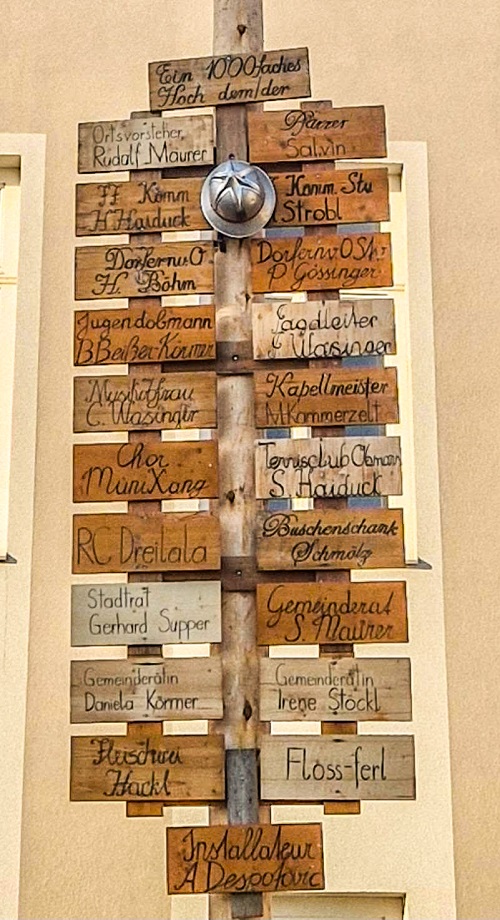 Ein 1000faches
Hoch dem/der
Ortsvorsteher
Rudolf Maurer
Pfarrer
Salvin
FF Komm
H Haiduck
Komm. Stv
Strobl
Dorfern. O
H. Böhm
Dorfern. O Stv.
P Gössinger
Jugendobmann
B Beißer-Körmer
Jagdleiter
Wasinger
C. Wasinger
Kapellmeister
M Kommerzelt
Chor
MuniKang
Tennisclub Obmann
S. Haiduck
RC Dreilala
Buschenschank
Schmölz
Stadtrat
Gerhard Supper
Gemeinderat
S. Maurer
Gemeinderätin
Daniela Körmer
Gemeinderätin
Irene Stöckl
Fleischerei
Hackl
Floss-ferl
Installateur
A Despotovic